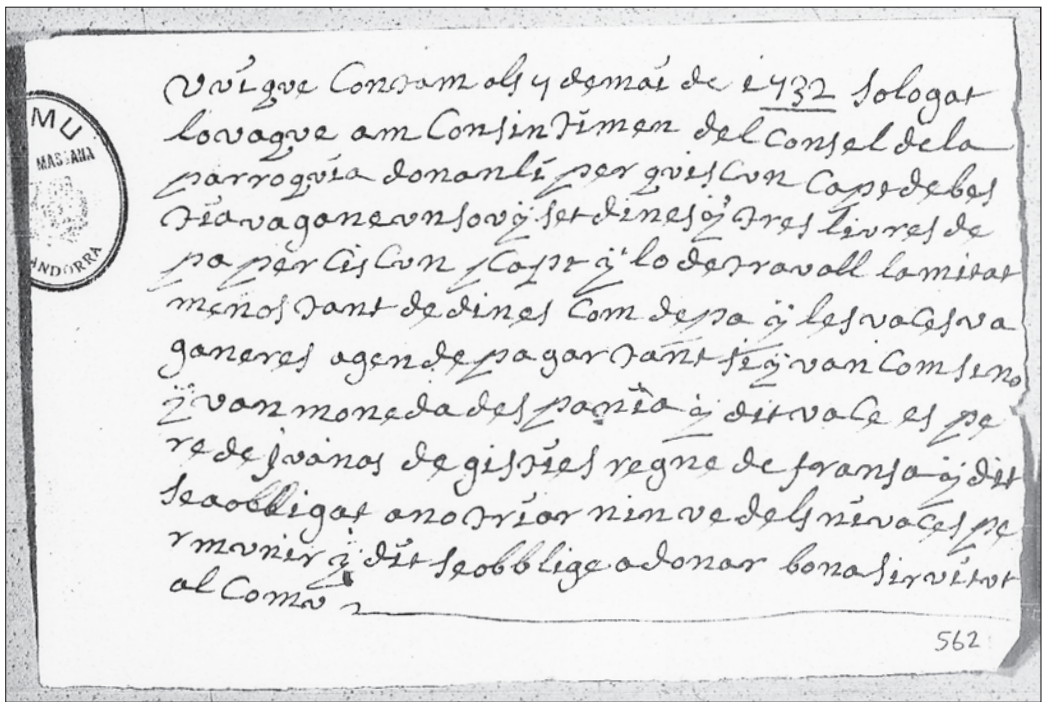 MU
MASSANA
ANDORRA
Vuique Contam als 4 de mai de 1732 so logat
lo vaque am Consintimen del Consel de la
parroquia donanli per quiscun Cap de bes
tia vagane un sou ÿ set dines ÿ tres liures de
pa per Ciscun Cap ÿ lo de travall la mitat
menos tant de dines Com de pa ÿ les vaces va
ganeres agen de pagar tant si ÿ van Com si no
ÿ van moneda des pania ÿ dit vace es pe
re de juanos de gisties regne de fransa ÿ dit
se a obbligat a no triar ninve dels ni vaces pe
r munir ÿ dit se obblige a donar bona sirvitut
al Comu
562